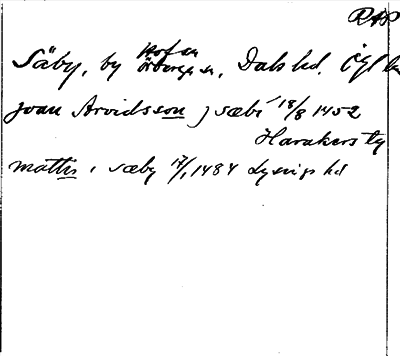 RAP
Säby, by Örberga sn, Dals hd. Ög l
joan Arvidsson j sæbi 18/8 1452
Harakers ty
mattis i sæby 17/1 1484 Lysings hd